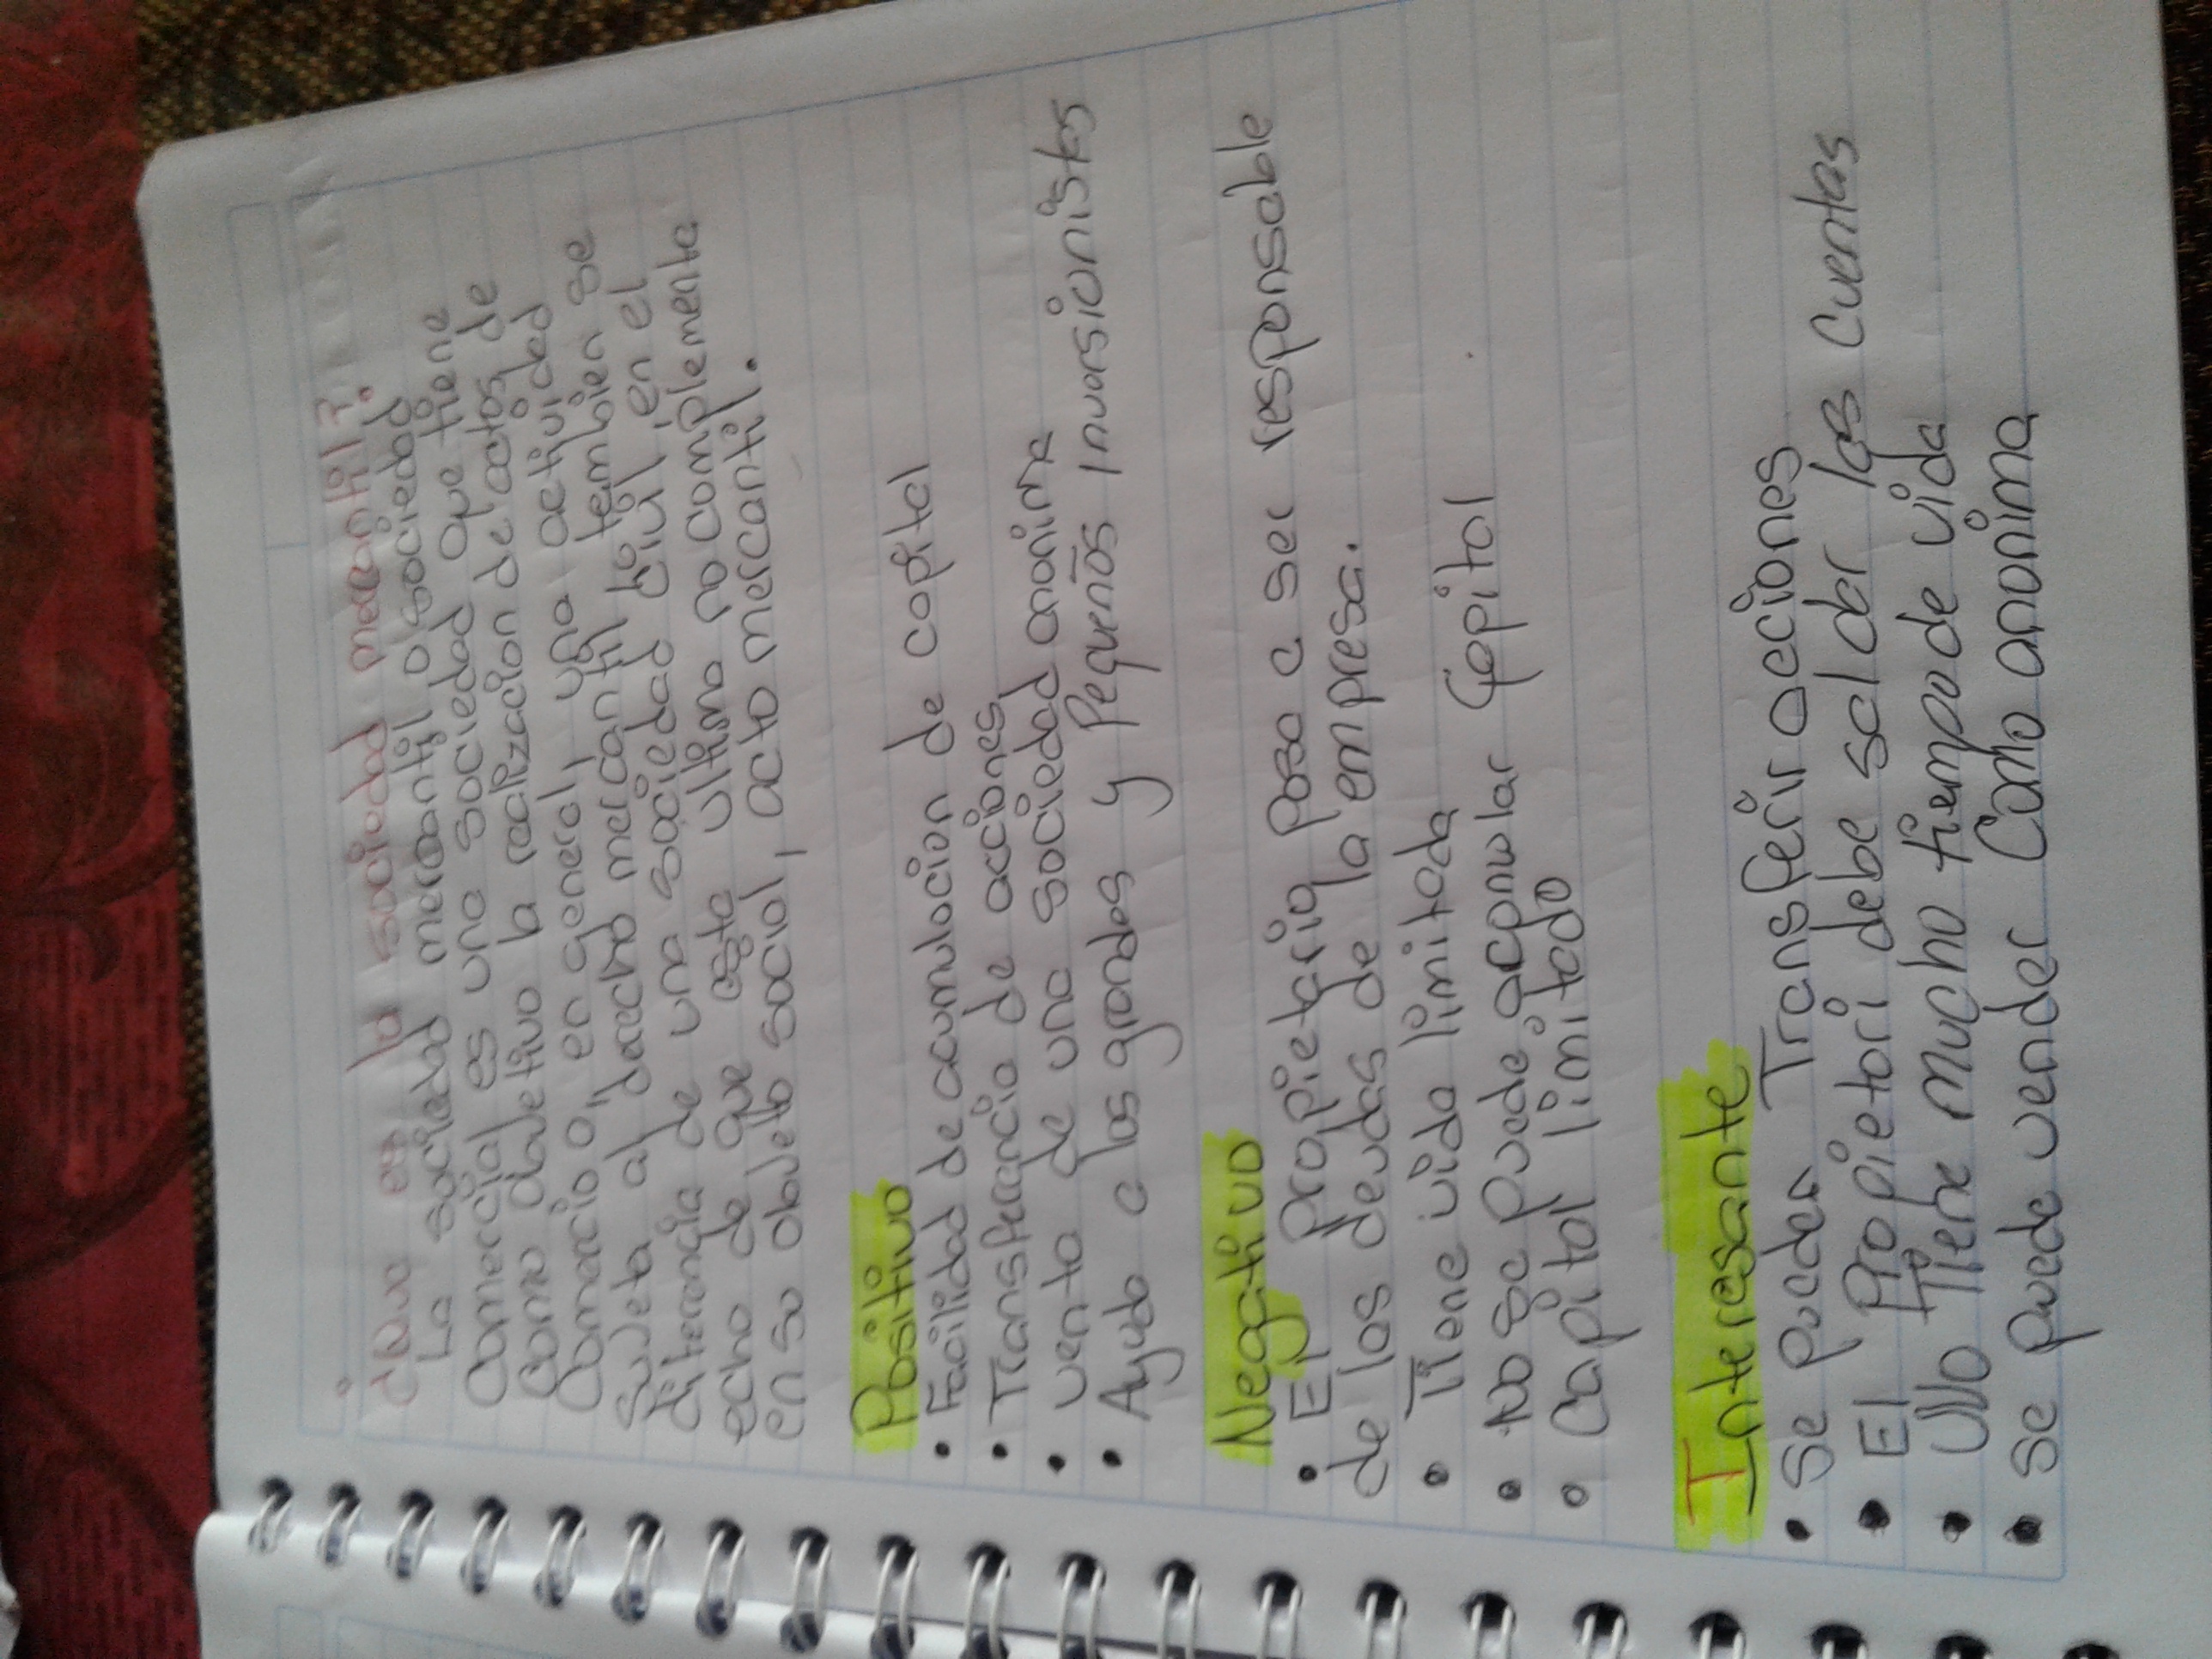 ¿Que es la sociedad mercantil?
La sociedad mercantil o sociedad
Comercial es una sociedad que tiene
Como objetivo la realizacion de actos de
Comercio o, en general, una actividad
sujeta al derecho mercantil tembien se
diferencia de una sociedad civil en el
echo de que esta ultimo no complementa
en so objeto social, acto mercantil.
Positivo
• Facilidad de acumulacion de capital
• Transferencia de acciones
• venta de una sociedad anonima
• Ayuda a los grandes y Pequeños inversionistas
Negativo
• El propietario pasa a ser responsable
de las deudas de la empresa.
• Tiene vida limitada
• No se puede acomular Capital
• Capital limitado
Interesante
• Se pueden Transferir acciones
• El Propietari debe saldar las cuentas
• No Tiene mucho tiempo de vida
• Se puede vender Como anonima